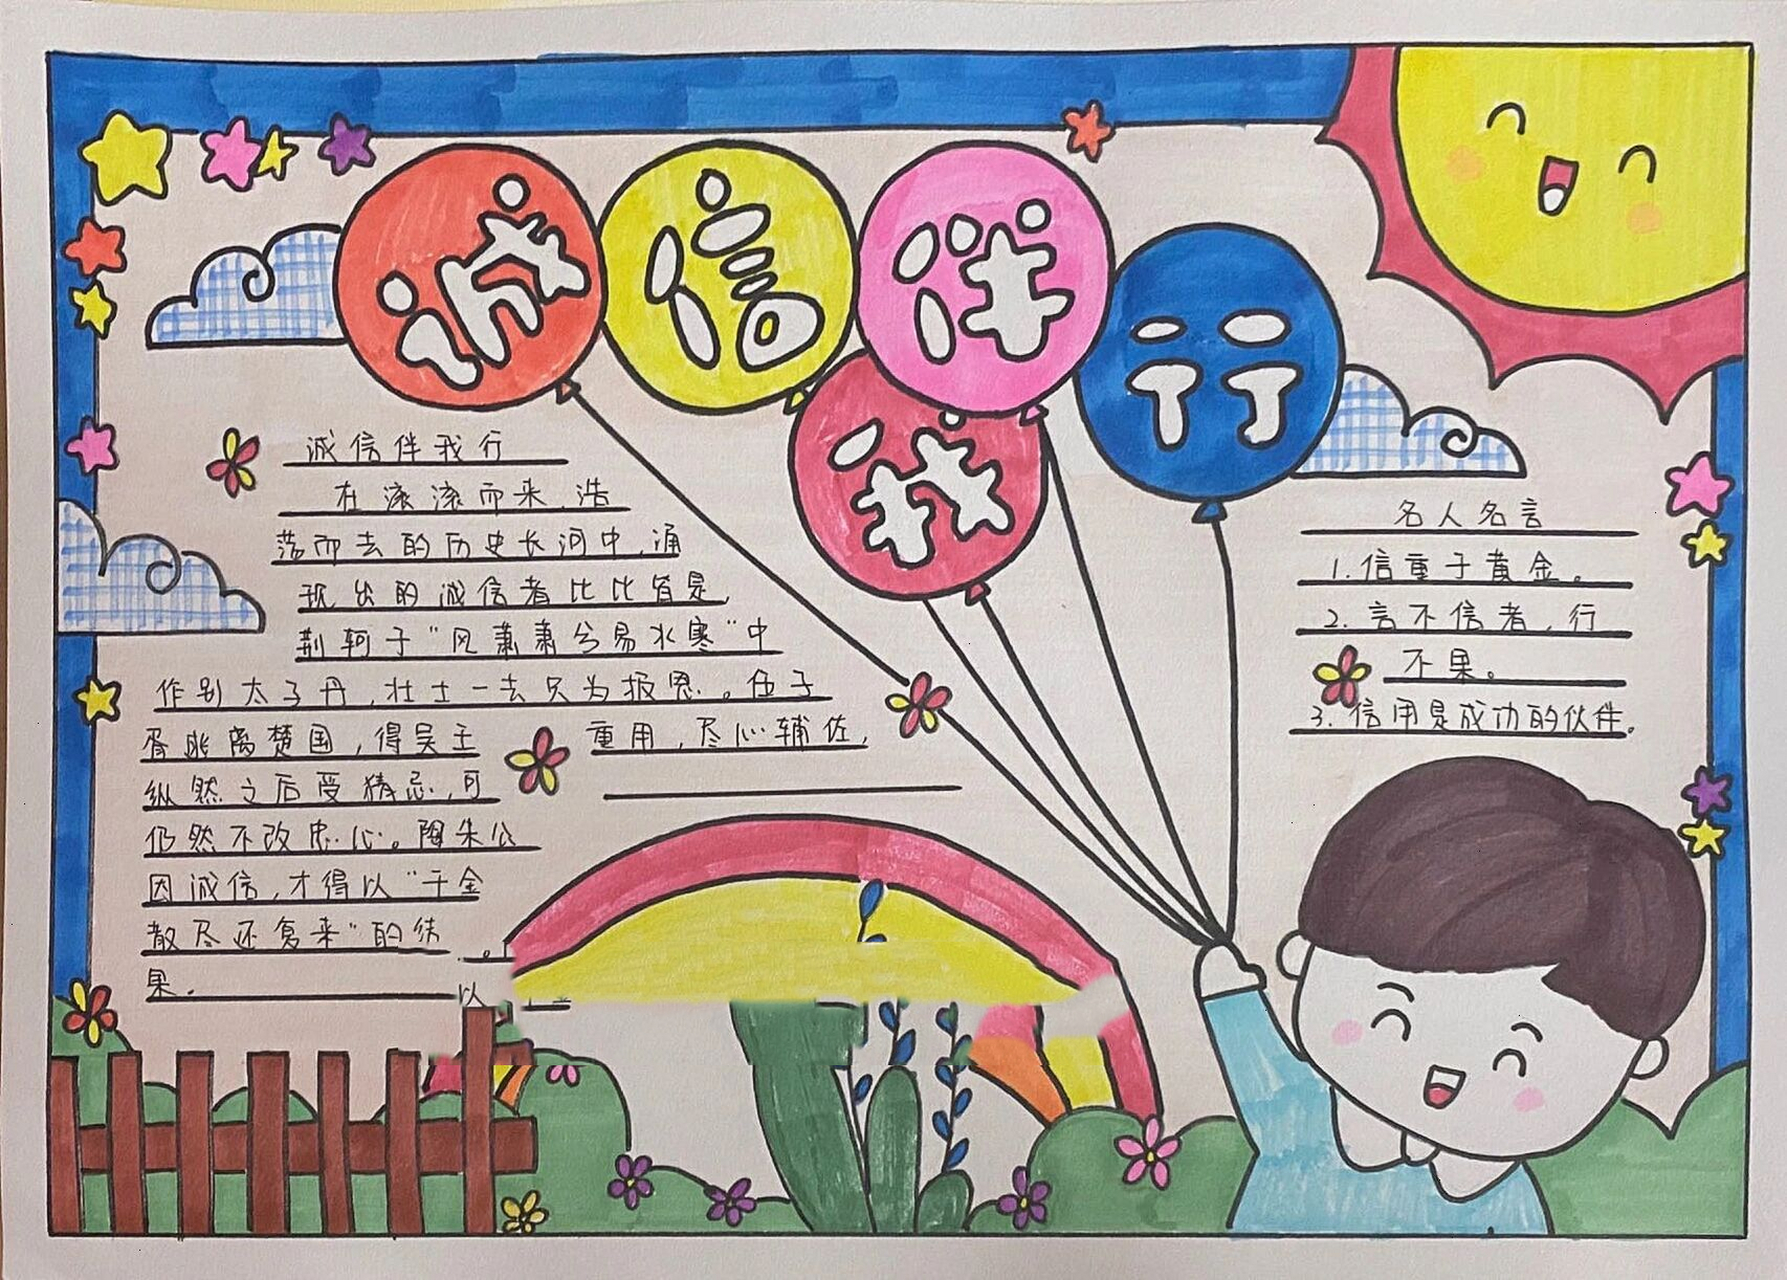 诚信伴我行
诚信伴我行
在滚滚而来,浩
荡而去的历史长河中,涌
现出的诚信者比比皆是,
荆轲于“风萧萧兮易水寒”中
作别太子丹,壮士一去只为报恩。伍子
胥逃离楚国,得吴王
重用,尽心辅佐,
纵然之后受猜忌,可
仍然不改忠心。陶朱公
因诚信,才得以“千金
散尽还复来”的结
果。
以
名人名言
1.信重于黄金。
2.言不信者,行
不果。
3.信用是成功的伙伴。